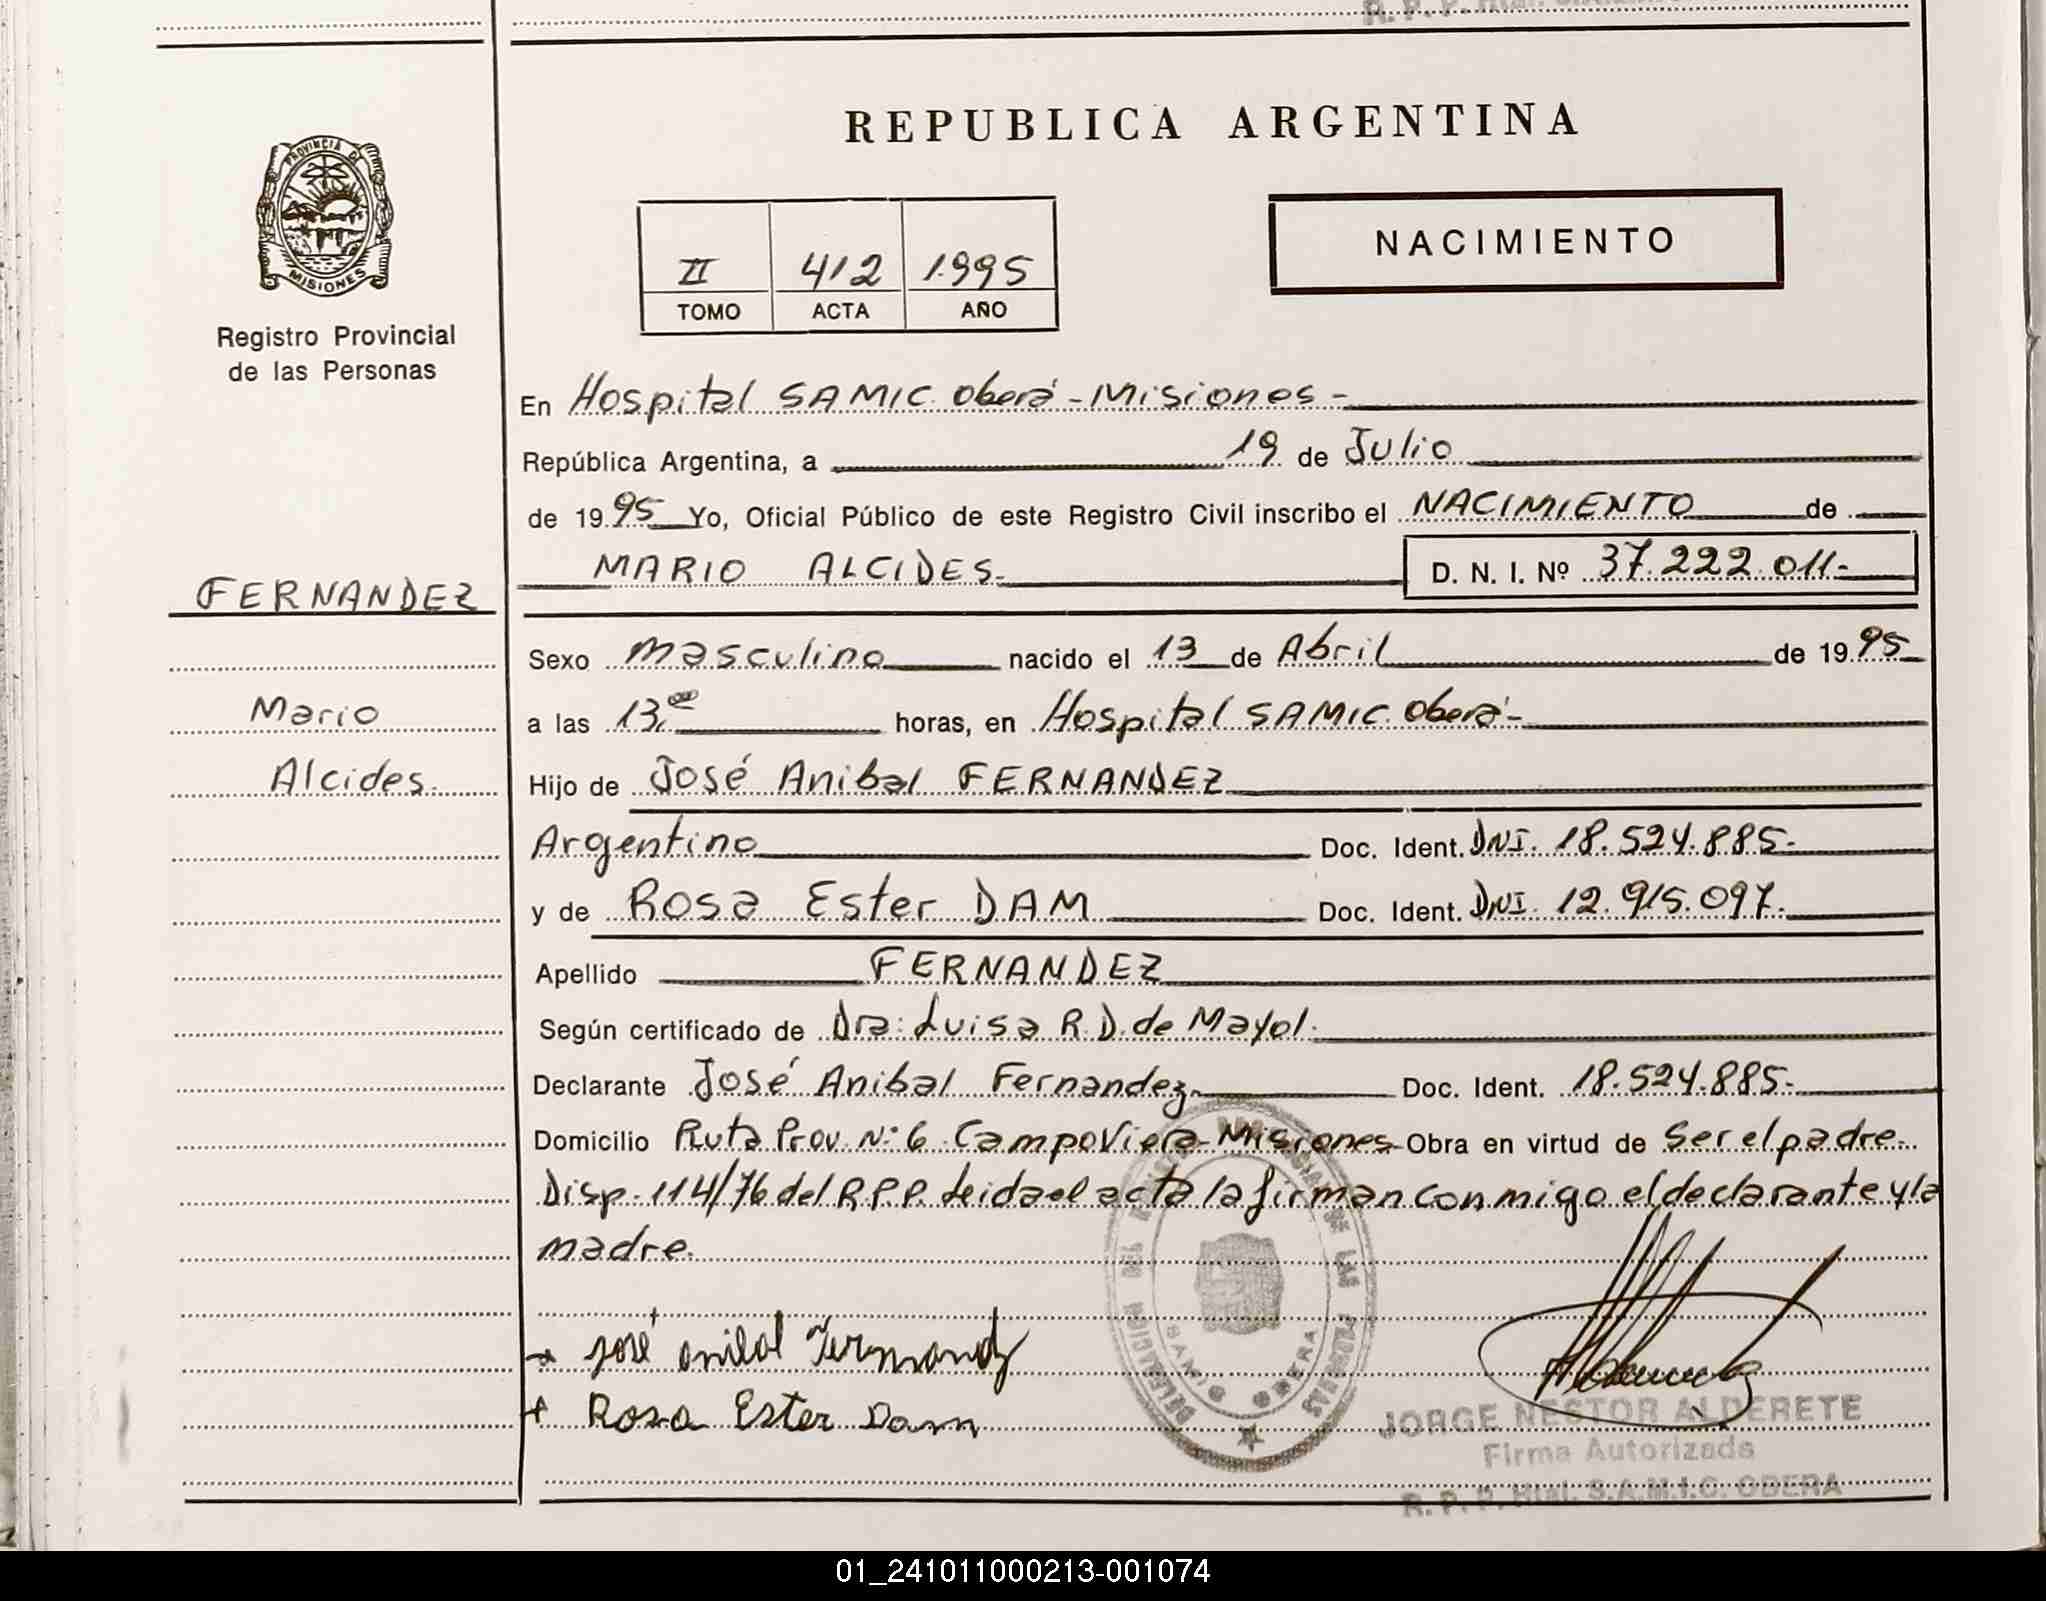 R. P. P. Htal.
REPUBLICA ARGENTINA
PROVINCIA DE
MISIONES
Registro Provincial
de las Personas
II 412 1.995
TOMO ACTA AÑO
NACIMIENTO
En Hospital SAMIC. Oberá - Misiones -
República Argentina, a 19 de Julio
de 19 95 Yo, Oficial Público de este Registro Civil inscribo el NACIMIENTO de
MARIO ALCIDES. D. N. I. Nº 37.222.011.-
FERNANDEZ
Mario
Alcides.
Sexo Masculino nacido el 13 de Abril de 19 95
a las 13,00 horas, en Hospital SAMIC. Oberá -
Hijo de José Anibal FERNANDEZ
Argentino Doc. Ident. DNI. 18.524.885.-
y de Rosa Ester DAM Doc. Ident. DNI. 12.915.097.
Apellido FERNANDEZ
Según certificado de Dra: Luisa R. D. de Mayol.
Declarante José Anibal Fernandez Doc. Ident. 18.524.885.-
Domicilio Ruta Prov. Nº 6 Campo Viera - Misiones - Obra en virtud de Ser el padre.
Disp. 114/76 del R.P.P. Leida el acta la firman conmigo el declarante y la
madre.
José Anibal Fernandz
Rosa Ester Dam
DELEGACION DEL REGISTRO PROVINCIAL DE LAS PERSONAS
SAMIC OBERA
JORGE NESTOR ALDERETE
Firma Autorizada
R. P. P. Htal. S.A.M.I.C. OBERA
01_241011000213-001074